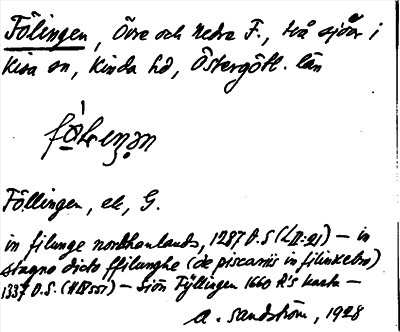 Fölingen, Övre och Nedra F., två sjöar i
Kisa sn, Kinda hd, Östergötl. län
Föllingen, ek, G.
in filunge northanlands, 1287 D.S (LII:21) – in
stagno dicto ffilunghe (de piscariis in filinkelro)
1337 D.S. – Siön Fyllingen 1660 R's karta –
A. Sandström, 1928